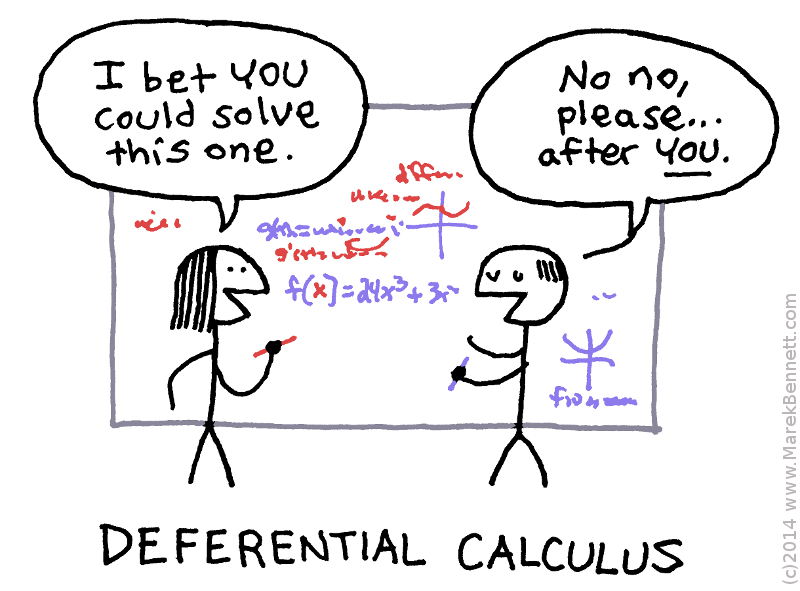 I bet YOU
could solve
this one.
No no,
please...
after YOU.
f(x) = 24x³ + 3x
DEFERENTIAL CALCULUS
(c)2014 www.MarekBennett.com